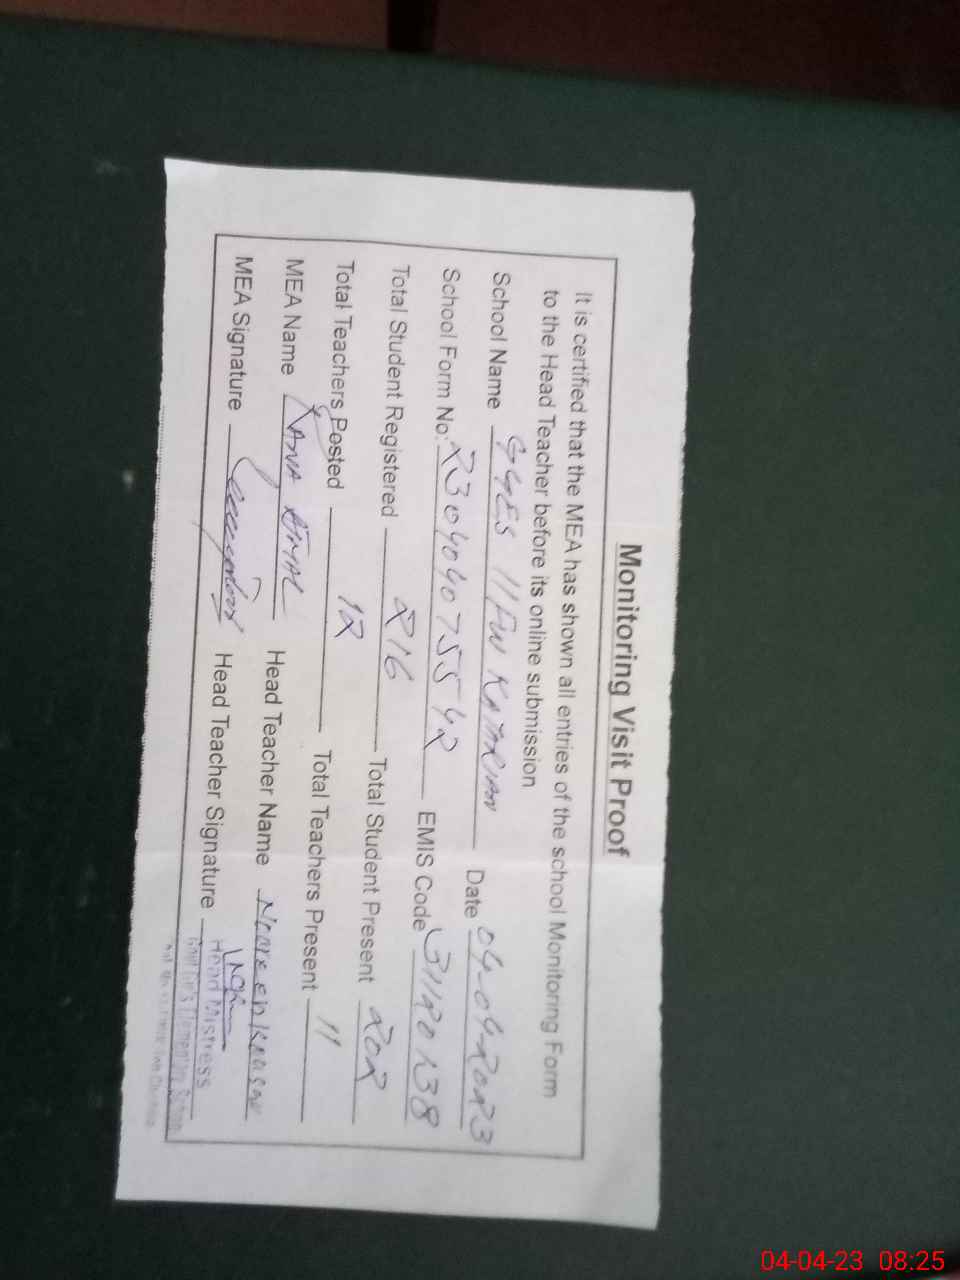 Monitoring Visit Proof
It is certified that the MEA has shown all entries of the school Monitoring Form
to the Head Teacher before its online submission
School Name GGES 11 FW KATARIAN Date 04-04-2023
School Form No: 230404075542 EMIS Code 31120138
Total Student Registered 216 Total Student Present 202
Total Teachers Posted 12 Total Teachers Present 11
MEA Name RANA Head Teacher Name Noreen Kausar
MEA Signature Head Teacher Signature
Head Mistress
Govt Girls Elementary School
04-04-23 08:25